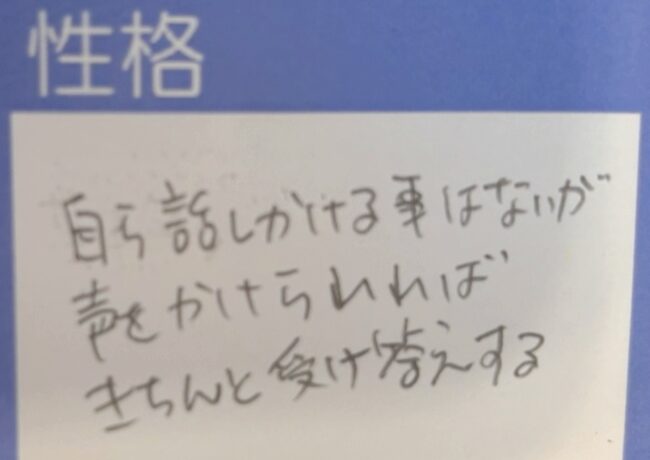 性格
自ら話しかける事はないが
声をかけられれば
きちんと受け答えする